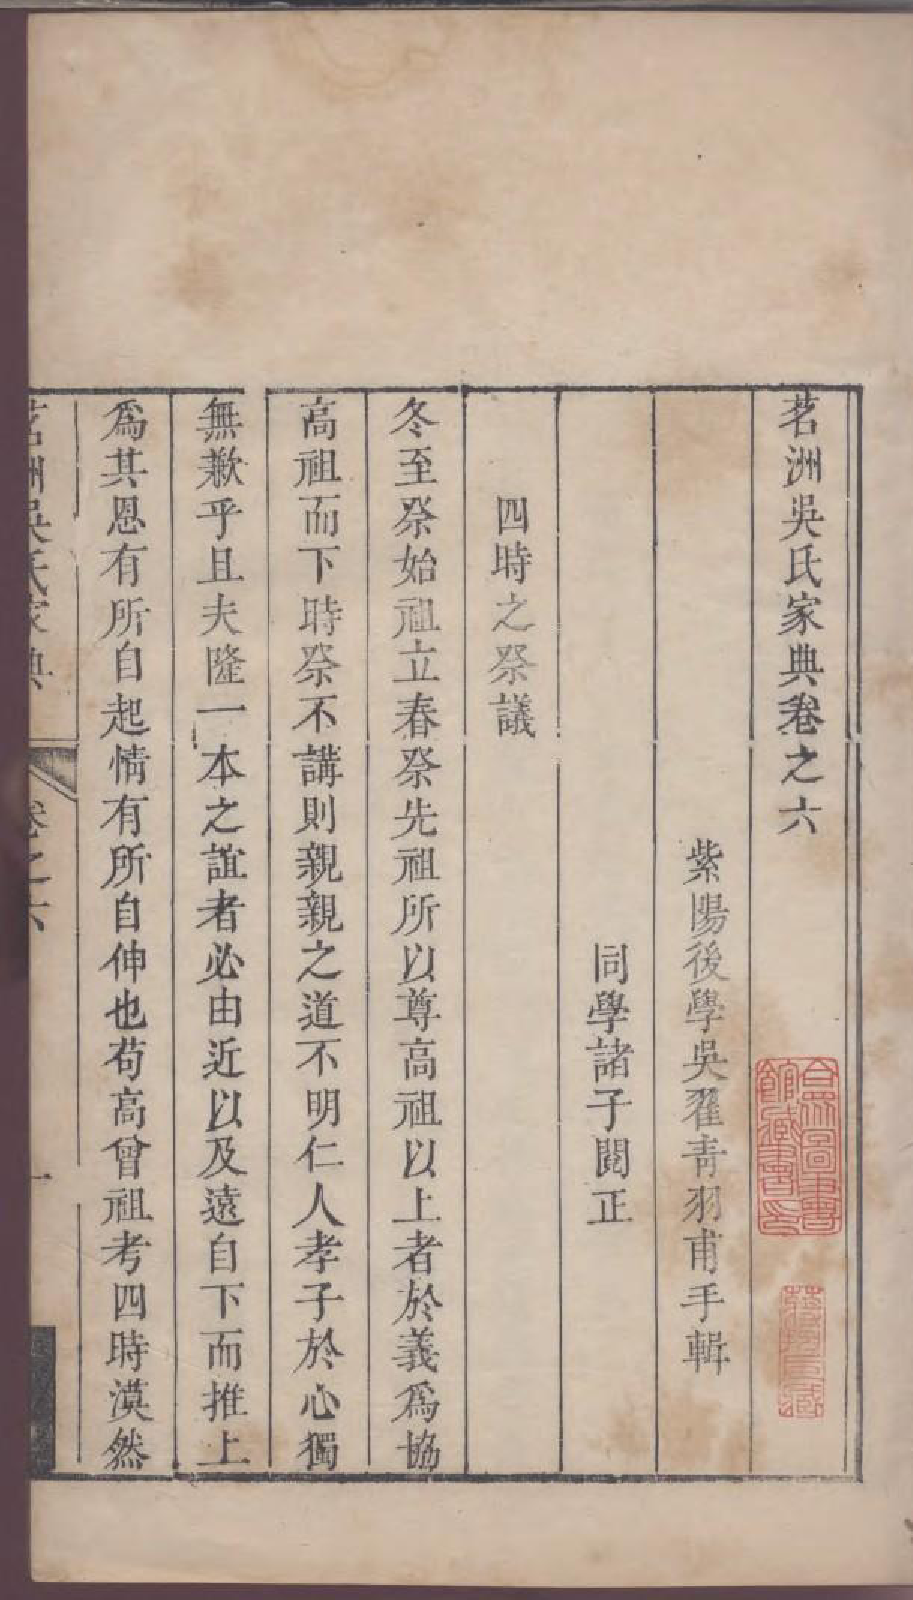 茗洲吳氏家典卷之六
紫陽後學吳翟青羽甫手輯
同學諸子閱正
四時之祭議
冬至祭始祖立春祭先祖所以尊高祖以上者於義爲協
高祖而下時祭不講則親親之道不明仁人孝子於心獨
無歉乎且夫隆一本之誼者必由近以及遠自下而推上
爲其恩有所自起情有所自伸也苟高曾祖考四時漠然
茗洲吳氏家典 卷之六 一